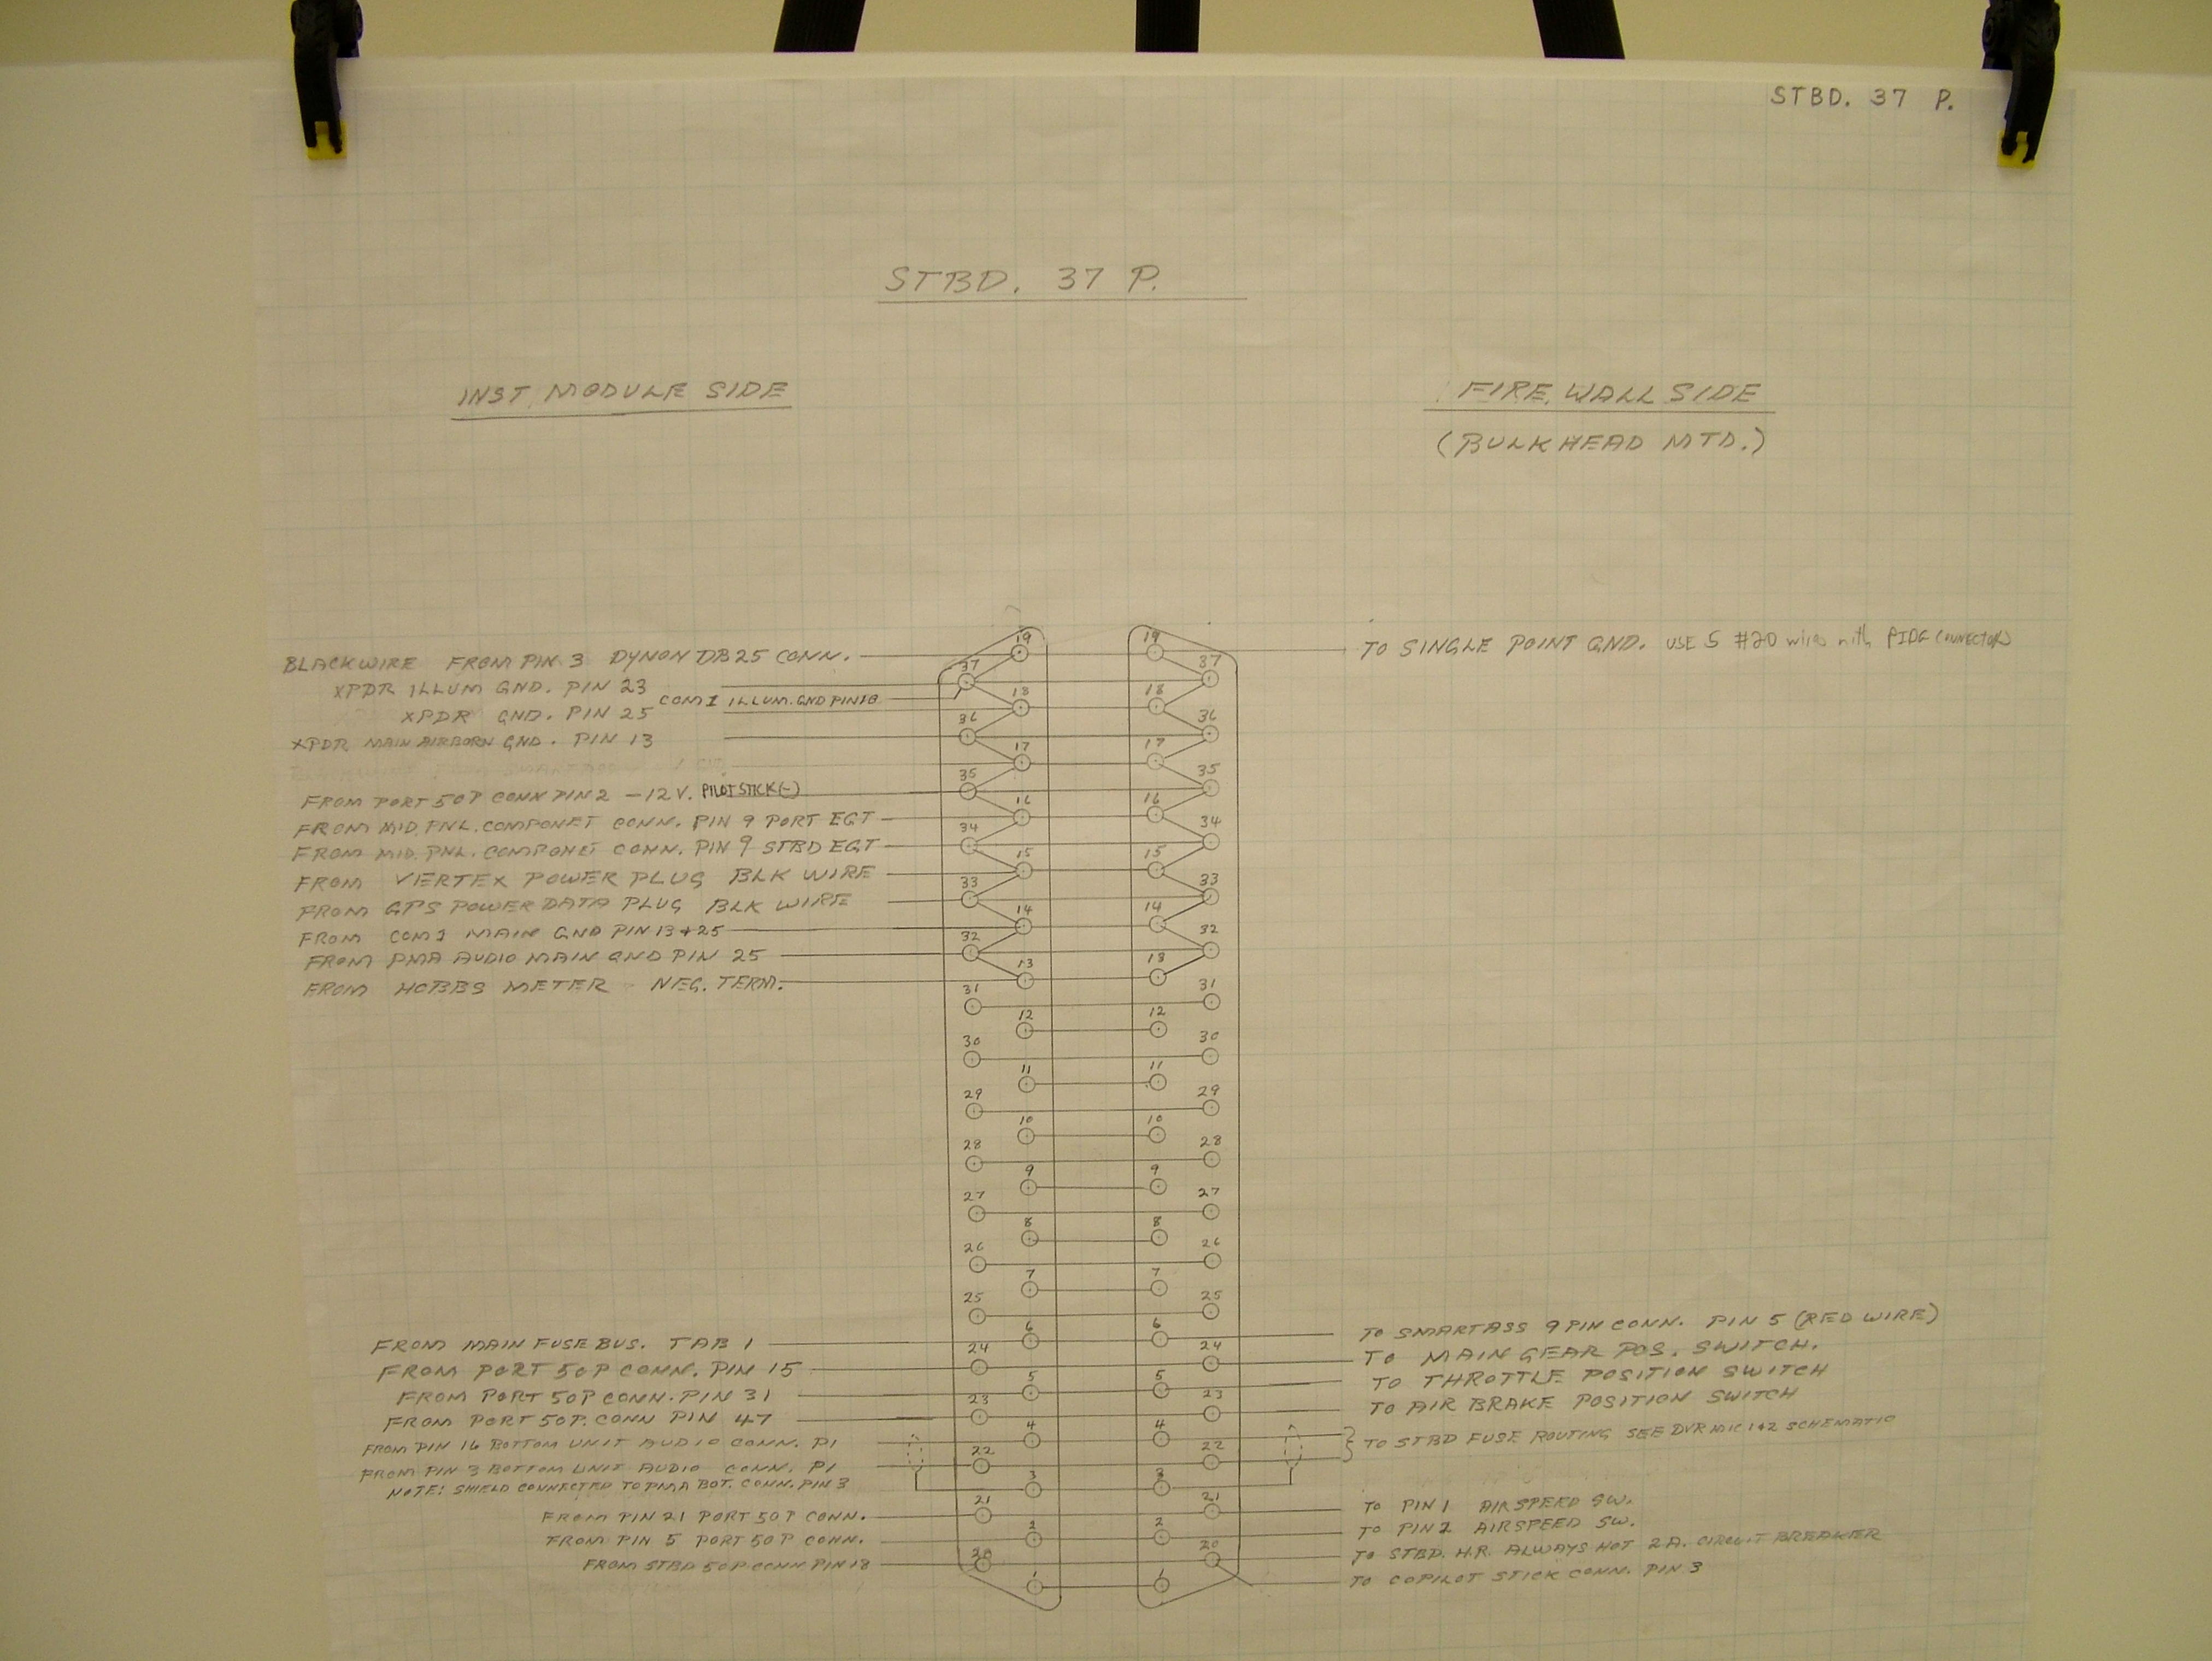 STBD. 37 P.
STBD. 37 P.
INST. MODULE SIDE
FIRE WALL SIDE
(BULKHEAD MTD.)
BLACKWIRE FROM PIN 3 DYNON DB25 CONN.
XPDR ILLUM GND. PIN 23
COM 1 ILLUM. GND PIN 10
XPDR GND. PIN 25
XPDR MAIN AIRBORN GND. PIN 13
FROM PORT 50P CONN PIN 2 -12V. PILOT STICK (-)
FROM MID. PNL. COMPONET CONN. PIN 9 PORT EGT
FROM MID. PNL. COMPONET CONN. PIN 9 STBD EGT
FROM VERTEX POWER PLUG BLK WIRE
FROM GPS POWER DATA PLUG BLK WIRE
FROM COM 1 MAIN GND PIN 13 + 25
FROM PMA AUDIO MAIN GND PIN 25
FROM HOBBS METER NEG. TERM.
FROM MAIN FUSE BUS. TAB 1
FROM PORT 50P CONN. PIN 15
FROM PORT 50P CONN. PIN 31
FROM PORT 50P. CONN PIN 47
FROM PIN 16 BOTTOM UNIT AUDIO CONN. P1
FROM PIN 3 BOTTOM UNIT AUDIO CONN. P1
NOTE: SHIELD CONNECTED TO PMA BOT. CONN. PIN 3
FROM PIN 21 PORT 50P CONN.
FROM PIN 5 PORT 50P CONN.
FROM STBD 50P CONN PIN 18
19 19
37 37
18 18
36 36
17 17
35 35
16 16
34 34
15 15
33 33
14 14
32 32
13 13
31 31
12 12
30 30
11 11
29 29
10 10
28 28
9 9
27 27
8 8
26 26
7 7
25 25
6 6
24 24
5 5
23 23
4 4
22 22
3 3
21 21
2 2
20 20
1 1
TO SINGLE POINT GND. USE 5 #20 wires with PIDG CONNECTORS
TO SMARTASS 9 PIN CONN. PIN 5 (RED WIRE)
TO MAIN GEAR POS. SWITCH.
TO THROTTLE POSITION SWITCH
TO AIR BRAKE POSITION SWITCH
TO STBD FUSE ROUTING SEE DVR MIC 1+2 SCHEMATIC
TO PIN 1 AIRSPEED SW.
TO PIN 2 AIRSPEED SW.
TO STBD. H.R. ALWAYS HOT 2A. CIRCUIT BREAKER
TO COPILOT STICK CONN. PIN 3